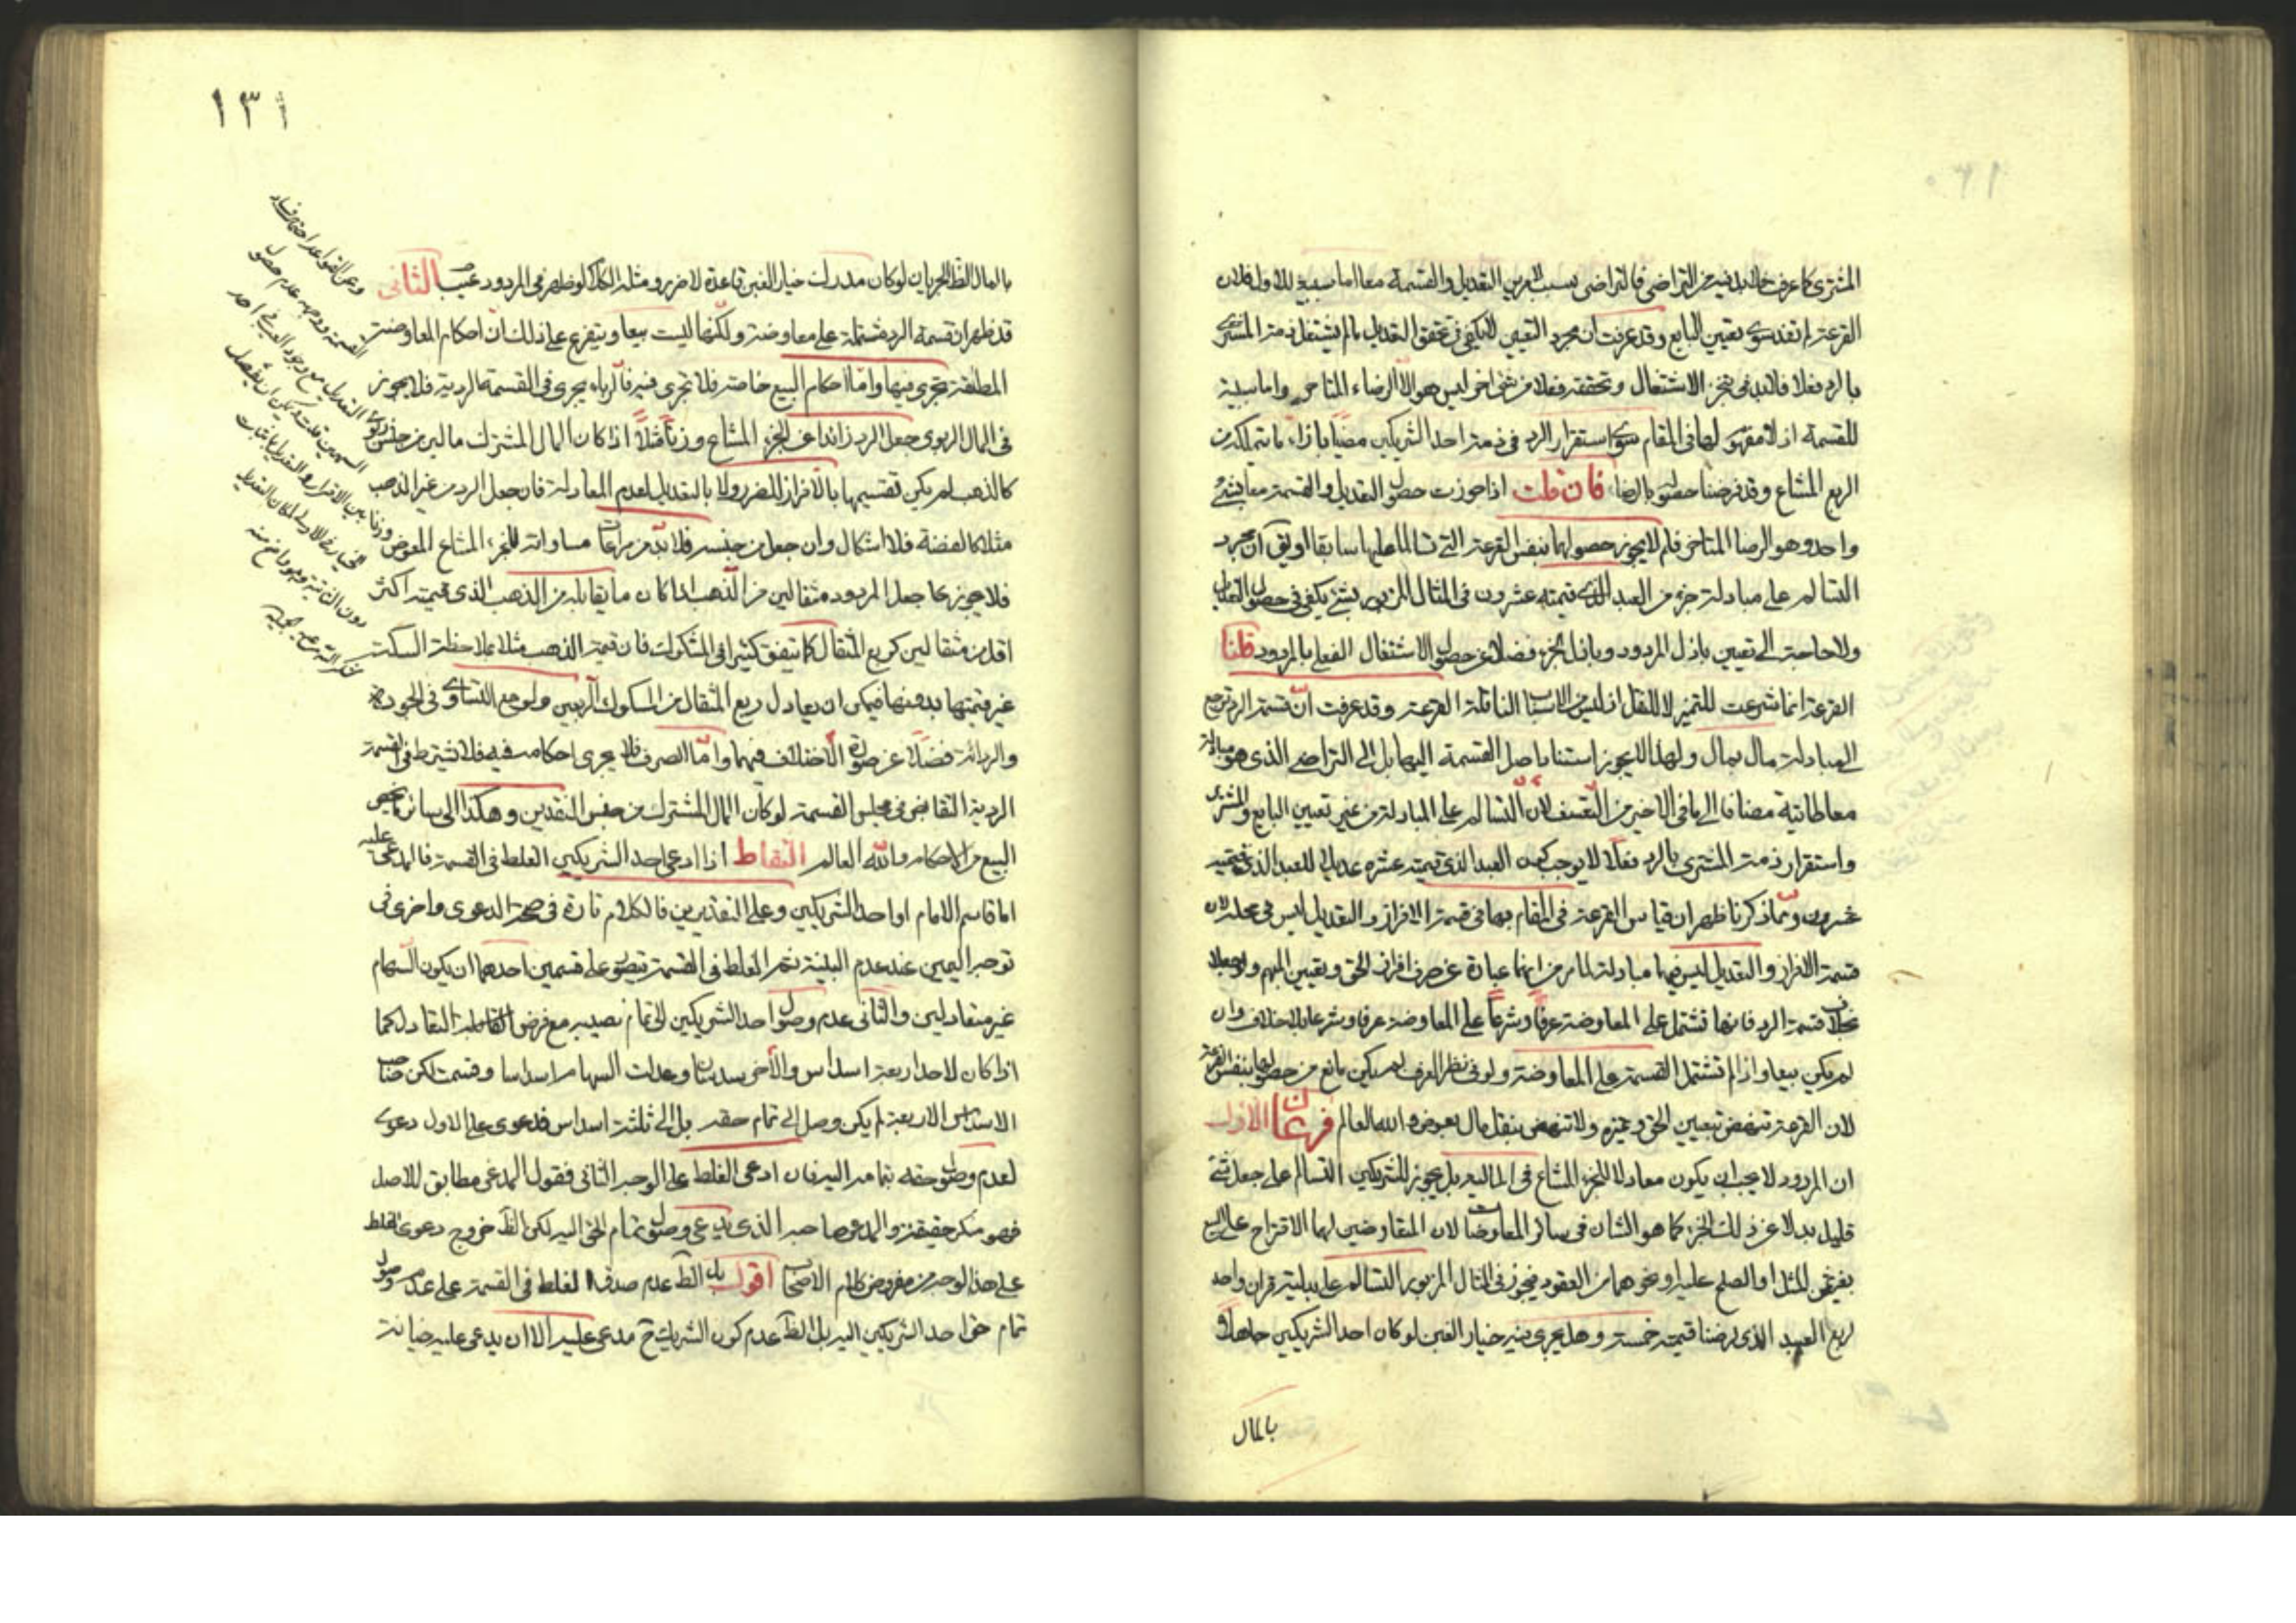 المشترى كما عرفت فلابد فيه من التراضى فالتراضى يسبب لامرين التعديل والقسمة معا اما سببية للاول فلان
القرعة لم تفد سوى تعيين البايع وقد عرفت ان مجرد التعيين لا يكفى فى تحقق التعديل ما لم يشتغل ذمة المشترى
بالرد فعلا فلابد فى تنجز الاشتغال وتحققه فعلا من شئ اخر ليس هو الا الرضاء المتاخر واما سببية
للقسمة اذ لا مفهوم لها فى المقام سوى استقرار الرد فى ذمة احد الشريكين مضيا بازاء ما يتملكه من
الربع المشاع وقد فرضنا حصوله بالرضا فان قلت اذا جوزت حصول التعديل والقسمة معا بشئ
واحد وهو الرضا المتاخر فلم لا يجوز حصولهما بنفس القرعة التى تسالما عليها سابقا او يق ان مجرد
التسالم على مبادلة جزء من العبد الذى قيمته عشرون فى المثال المزبور بشئ يكفى فى حصول التعديل
ولا حاجة الى تعيين باذل المردود وباذل الجزء فضلا عن حصول الاشتغال الفعلى بالمردود قلنا
القرعة انما شرعت للتميز لا للنقل اذ ليس من الاسباب الناقلة القرعة وقد عرفت ان قسمة الرد ترجع
الى مبادلة مال بمال ولهذا لا يجوز استناد اصل القسمة اليها بل الى التراضى الذى هو مبادلة
معاطاتية مضافا الى ما فى الاخير من التعسف لان التسالم على المبادلة من غير تعيين البايع والمشترى
واستقرار ذمة المشترى بالرد فعلا لا يوجب كون العبد الذى قيمته عشرة عديلا للعبد الذى قيمته
عشرون ومما ذكرنا ظهر ان قياس القرعة فى المقام بها فى قسمة الافراز والتعديل ليس فى محله لان
قسمة الافراز والتعديل ليس فيها مبادلة لما مر من انها عبارة عن صرف افراز الحق وتعيين المبهم
بخلاف قسمة الرد فانها تشتمل على المعاوضة عرفا وشرعا على المعاوضة عرفا وشرعا بلا خلاف وان
لم يكن بيعا واذا لم تشتمل القسمة على المعاوضة ولو فى نظر العرف لم يكن مانع من حصولها بنفس القرعة
لان القرعة تنهض بتعيين الحق وتميزه ولا تنهض بنقل مال بعوض والله العالم فرعان الاول
ان المردود لا يجب ان يكون معادلا للجزء المشاع فى المالية بل يجوز للشريكين التسالم على جعل شئ
قليل بدلا عن ذلك الجزء كما هو الشان فى سائر المعاوضات لان المتعاوضين لهما الاقتراح على البيع
بغير ثمن المثل او الصلح عليه او نحوهما من العقود فيجوز فى المثال المزبور التسالم على بدلية قران واحد
لربع العبد الذى فرضنا قيمته خمسة وهل يجرى فيه خيار الغبن لو كان احد الشريكين جاهلا
بالمال
١٣١
بالمال الظ الجريان لو كان مدرك خيار الغبن قاعدة لا ضرر ومثله الكلام لو ظهر فى المردود عيب الثانى
قد ظهر ان قسمة الرد مشتملة على معاوضة ولكنها ليست بيعا ويتفرع على ذلك ان احكام المعاوضة
المطلقة تجرى فيها واما احكام البيع خاصة فلا تجرى فيه فالرباء يجرى فى القسمة الردية فلا يجوز
فى المال الربوى جعل الرد زائدا عن الجزء المشاع وزنا مثلا اذا كان المال المشترك مالين من جنس ربوى
كالذهب لم يكن تقسيمها بالافراز للضرر ولا بالتعديل لعدم المعادلة فان جعل الرد من غير الذهب
مثلا كالفضة فلا اشكال وان جعل من جنسه فلابد من مراعات مساواته للجزء المشاع المعوض
فلا يجوز بما جعل المردود مثقالين من الذهب اذا كان ما يقابله من الذهب الذى قيمته اكثر
اقل من مثقالين كربع المثقال كما يتفق كثيرا فى المسكوك فان قيمة الذهب مثلا بملاحظة السكة
غير قيمتها بدونها فيمكن ان يعادل ربع المثقال من المسكوك اربعين ولو مع التساوى فى الجودة
والردائة فضلا عن صورة الاختلاف فيهما واما الصرف فلا يجرى احكامه فيه فلا تشترط فى القسمة
الردية التقابض فى مجلس القسمة لو كان المال المشترك من جنس النقدين وهكذا الى سائر ما يخص
البيع من الاحكام والله العالم التقاط اذا ادعى احد الشريكين الغلط فى القسمة فالمدعى عليه
اما قاسم الامام او احد الشريكين وعلى التقديرين فالكلام تارة فى صحة الدعوى واخرى فى
توجه اليمين عند عدم البينة ثم الغلط فى القسمة يتصور على قسمين احدهما ان يكون السهام
غير متعادلين والثانى عدم وصول احد الشريكين الى تمام نصيبه مع فرض التعادل كما
اذا كان لاحد اربعة اسداس والآخر سدسان وعدلت السهام اسداسا وقسمت لكن صاحب
الاسداس الاربعة لم يكن وصل الى تمام حقه بل الى ثلثة اسداس فدعوى على الاول دعوى
لعدم وصول حقه بتمامه اليه فان ادعى الغلط على الوجه الثانى فقول المدعى مطابق للاصل
فهو منكر حقيقة والمدعى صاحبه الذى يدعى وصول تمام الحق اليه لكن الظ خروج دعوى الغلط
على هذا الوجه من مفروض كلام الاصحاب اقول بل الظ عدم صدق الغلط فى القسمة على عدم وصول
تمام حق احد الشريكين اليه بل الظ عدم كون الشريك ح مدعى عليه الا ان يدعى عليه خيانة